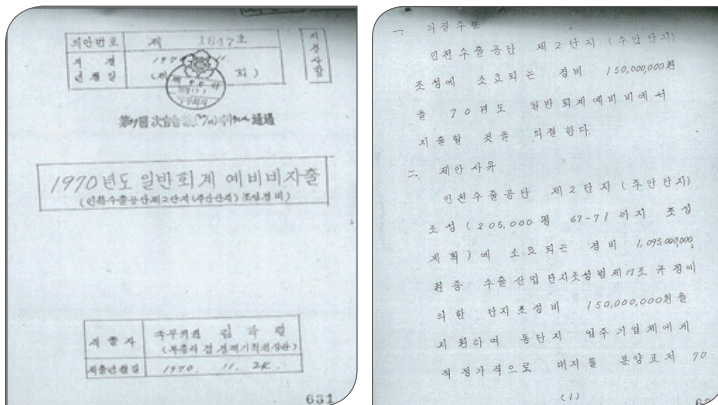 의안번호 제 1617호
의 결
년월일 (제 회)
의
결
사
항
1970년도 일반회계 예비비지출
(인천수출공단제2단지(주안단지) 조성경비)
제출자 국무위원 김학렬
(부총리 겸 경제기획원장관)
제출년월일 1970. 11. 24.
631
一. 의결주문
인천수출공단 제2단지 (주안단지)
조성에 소요되는 경비 150,000,000원
을 70년도 일반회계예비비에서
지출할 것을 의결한다.
二. 제안사유
인천수출공단 제2단지 (주안단지)
조성 (205,000평 67-71까지 조성
계획)에 소요되는 경비 1,095,000,000
원중 수출산업단지조성법제17조 규정에
의한 단지조성비 150,000,000원을
지원하여 동단지 입주기업체에게
적정가격으로 대지를 분양코저 70
(1)